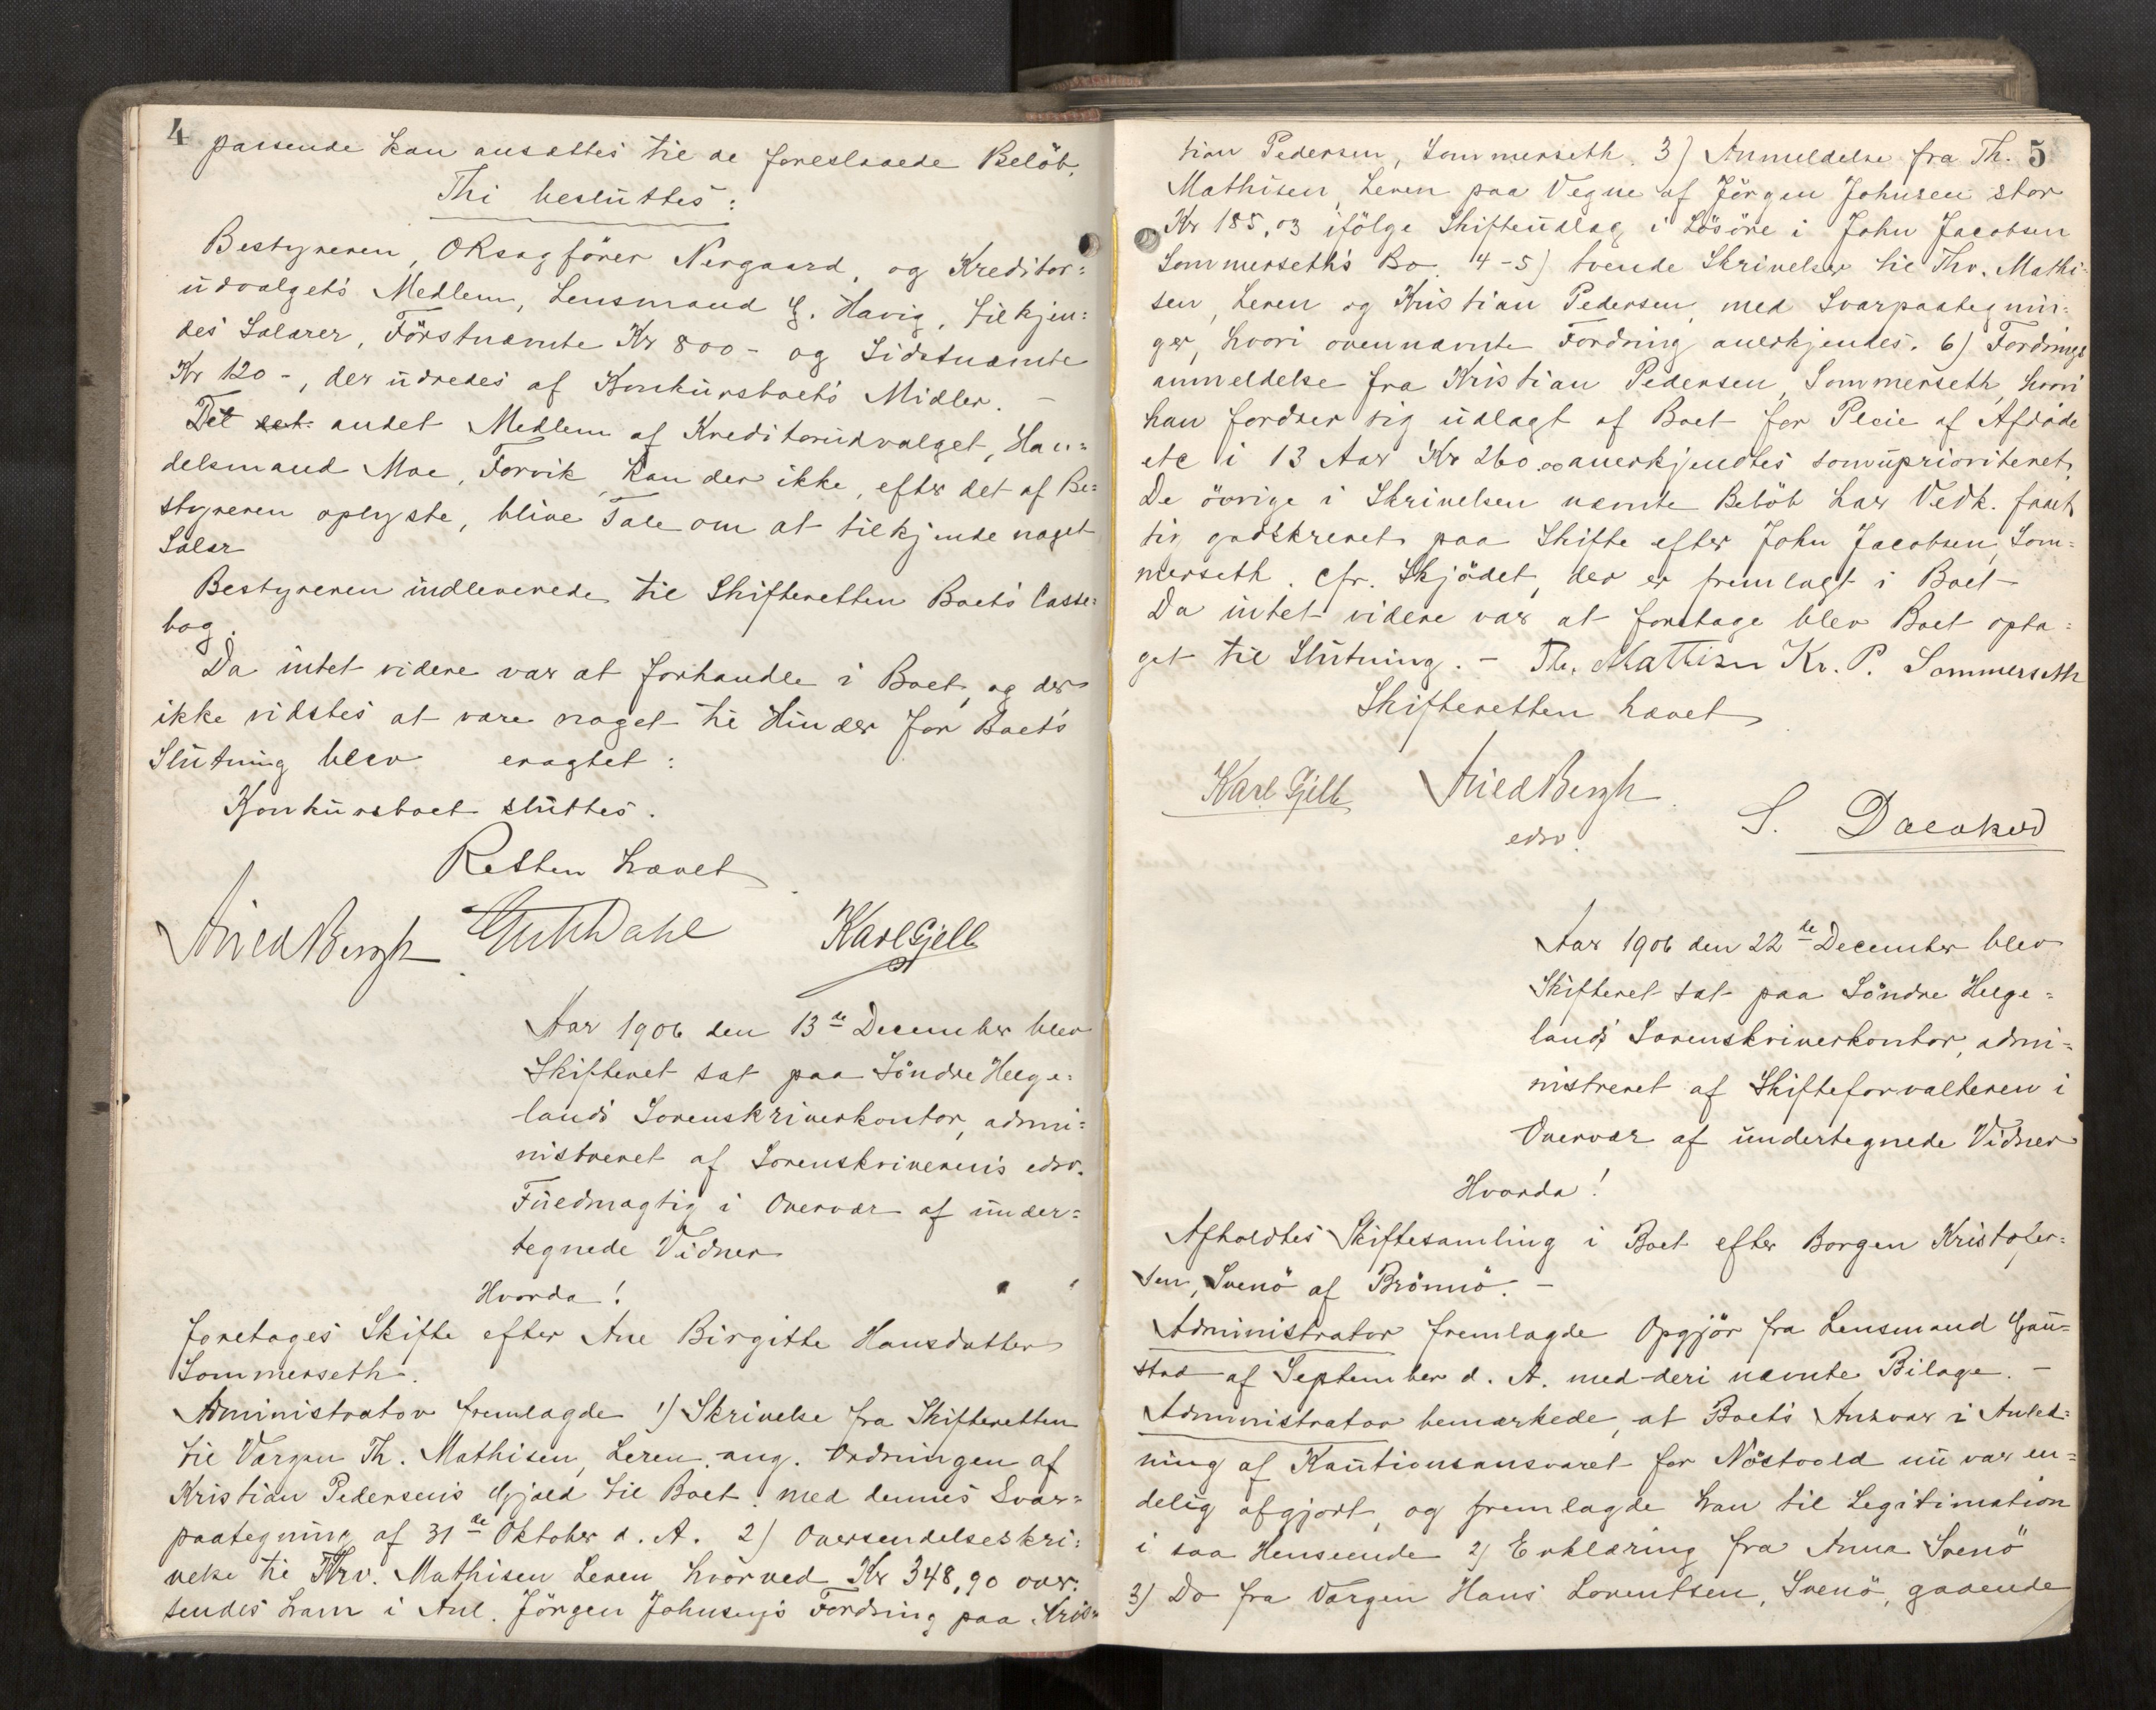 4
passende kan ansættes til de foreslaaede Beløb.
Thi besluttes:
Bestyreren, ORsagfører Nergaard, og Kreditor=
udvalgets Medlem, Lensmand G. Havig, tilkjen=
des Salarer, Förstnævnte Kr 800 - og Sidstnævnte
Kr 120 -, der udredes af Konkursboets Midler. -
Det andet Medlem af Kreditorudvalget, Han=
delsmand Moe, Forvik, kan der ikke, efter det af Be=
styreren oplyste, blive Tale om at tilkjende noget
Salær
Bestyreren indleverede til Skifteretten Boets Casse=
bog.
Da intet videre var at forhandle i Boet, og der
ikke vidstes at være noget til Hinder for Boets
Slutning blev eragtet:
Konkursboet sluttes.
Retten hævet
Karl Gjelb
Aar 1906 den 13de December blev
Skifteret sat paa Söndre Helge=
lands Sorenskriverkontor, admi=
nistreret af Sorenskriverens edsv.
Fuldmægtig i Overvær af under=
tegnede Vidner
Hvorda!
foretages Skifte efter Ane Birgitte Hansdatter
Sommerseth.
Administrator fremlagde 1) Skrivelse fra Skifteretten
til Værgen Th. Mathisen, Leren, ang. Ordningen af
Kristian Pedersens Gjæld til Boet, med dennes Svar=
paategning af 31de Oktober d. A. 2) Oversendelseskri=
velse til Thv. Mathisen Leren hvorved Kr 348,90 over=
sendes ham i Anl. Jörgen Johnsens Fordring paa Kris=
5
tian Pedersen, Sommerseth. 3) Anmeldelse fra Th.
Mathisen, Leren paa Vegne af Jörgen Johnsen stor
Kr 185,03 ifölge Skifteudlæg i Lösöre i John Jacobsen
Sommerseths Bo. 4-5) tvende Skrivelser til Thv. Mathi=
sen, Leren og Kristian Pedersen, med Svarpaategnin=
ger, hvori ovennævnte Fordring anerkjendes. 6) Fordrings
anmeldelse fra Kristian Pedersen, Sommerseth, hvori
han fordrer sig udlagt af Boet for Pleie af Afdöde
etc i 13 Aar Kr 260,00 anerkjendtes som uprioriteret.
De övrige i Skrivelsen nævnte Belöb har Vedk. faaet
sig godskrevet paa Skifte efter John Jacobsen, Som=
merseth. cfr. Skjödet, der er fremlagt i Boet -
Da intet videre var at foretage blev Boet opta=
get til Slutning. - Th. Mathisen Kr. P. Sommerseth
Skifteretten hævet
Karl Gjelb
edsv.
Aar 1906 den 22de December blev
Skifteret sat paa Söndre Helge=
lands Sorenskriverkontor, admi=
nistreret af Skifteforvalteren i
Overvær af undertegnede Vidner
Hvorda!
Afholdtes Skiftesamling i Boet efter Borgen Kristofer=
sen, Svenö af Brönnö. -
Administrator fremlagde Opgjör fra Lensmand Gaü=
stad af September d. A. med deri nævnte Bilage. -
Administrator bemærkede, at Boets Ansvar i Anled=
ning af Kautionsansvaret for Nöstvold nu var en=
delig afgjort, og fremlagde han til Legitimation
i saa Henseende 2) Erklæring fra Anna Svenö
3) Do fra Værgen Hans Lorentsen, Svenö, gaaende